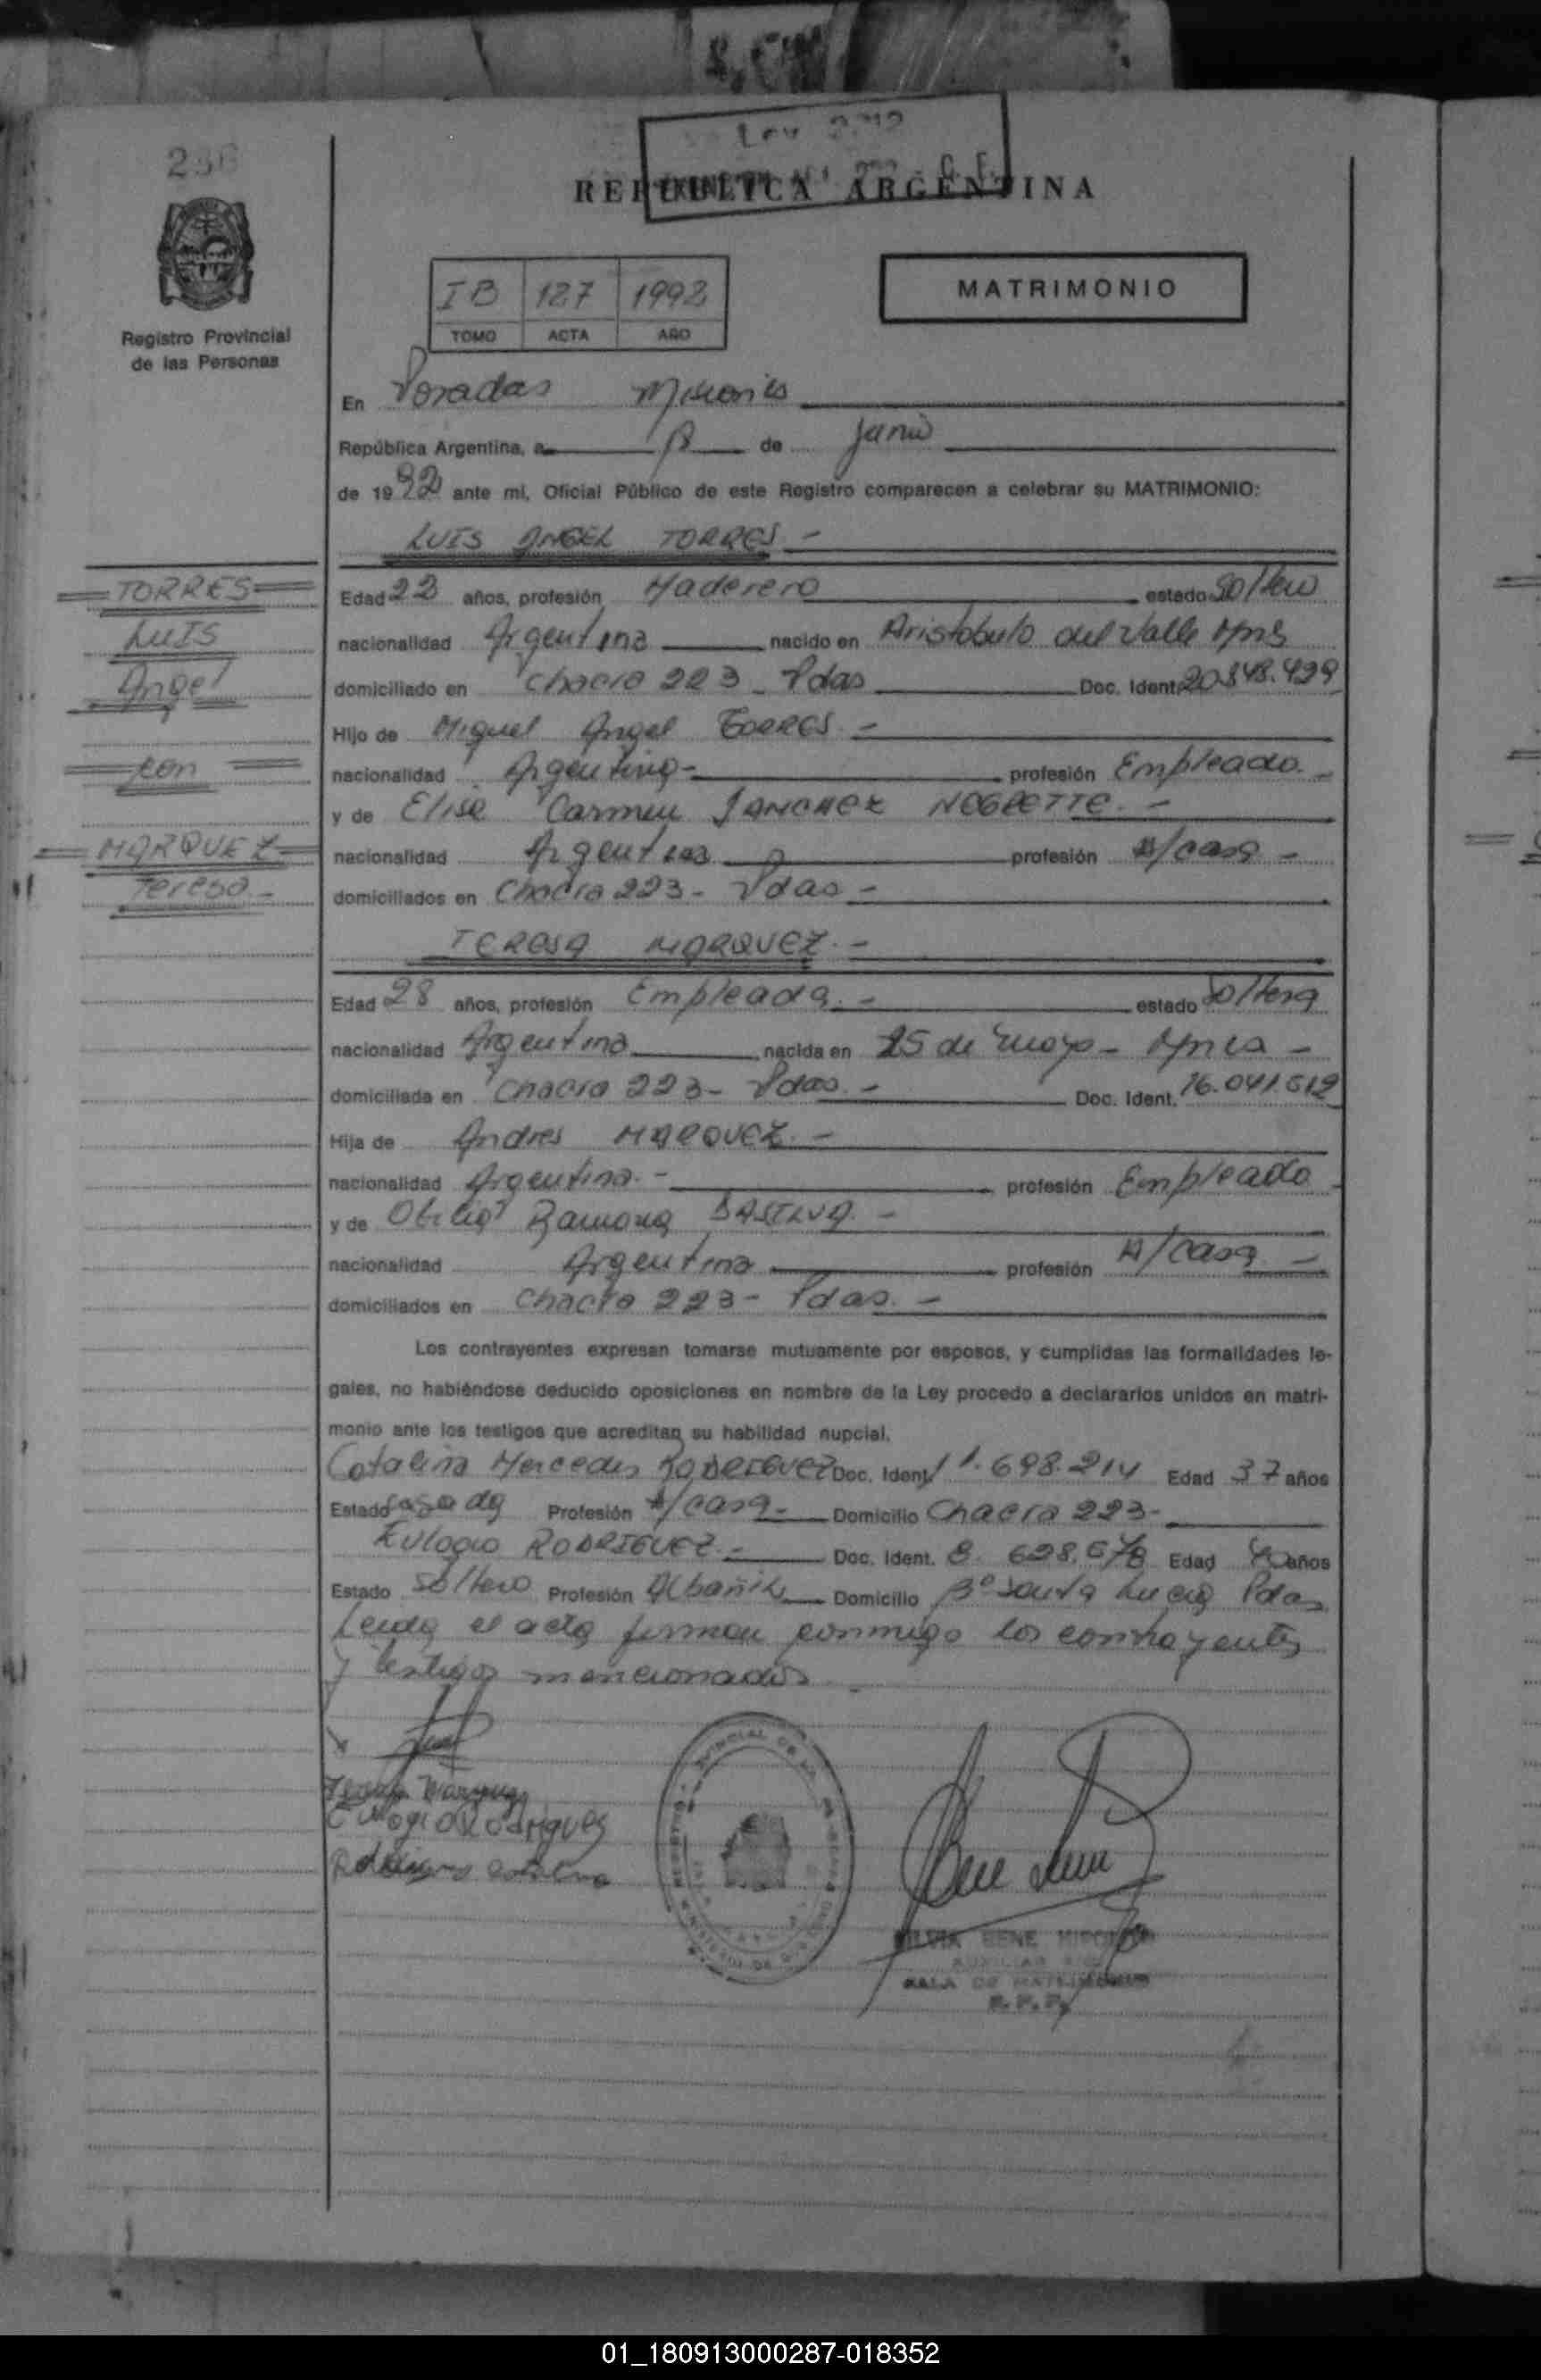 236
Ley
REPUBLICA ARGENTINA
Registro Provincial
de las Personas
IB 127 1992
TOMO ACTA AÑO
MATRIMONIO
En Posadas Misiones
República Argentina, a de Junio
de 1992 ante mi, Oficial Público de este Registro comparecen a celebrar su MATRIMONIO:
LUIS ANGEL TORRES -
TORRES
LUIS
Angel
con
MARQUEZ
Teresa -
Edad 22 años, profesión Maderero estado Soltero
nacionalidad Argentina nacido en Aristobulo del Valle Mns
domiciliado en Chacra 223 - Pdas Doc. Ident. 20.848.499
Hijo de Miguel Angel TORRES. -
nacionalidad Argentina - profesión Empleado. -
y de Elisa Carmen SANCHEZ NEGRETTE. -
nacionalidad Argentina profesión A/casa -
domiciliados en Chacra 223 - Pdas -
TERESA MARQUEZ. -
Edad 28 años, profesión Empleada. - estado Soltera
nacionalidad Argentina nacida en 25 de Mayo - Mnes -
domiciliada en Chacra 223 - Pdas. - Doc. Ident. 16.041.612
Hija de Andres MARQUEZ. -
nacionalidad Argentina. - profesión Empleado
y de Otilia Ramona DASILVA. -
nacionalidad Argentina profesión A/casa -
domiciliados en Chacra 223 - Pdas. -
Los contrayentes expresan tomarse mutuamente por esposos, y cumplidas las formalidades le-
gales, no habiéndose deducido oposiciones en nombre de la Ley procedo a declararlos unidos en matri-
monio ante los testigos que acreditan su habilidad nupcial.
Catalina Mercedes RODRIGUEZ Doc. Ident. 11.698.214 Edad 37 años
Estado casada Profesión A/casa - Domicilio Chacra 223 -
Eulogio RODRIGUEZ. - Doc. Ident. 8. 698.678 Edad 40 años
Estado Soltero Profesión Albañil Domicilio Bº Santa Lucia Pdas
Leida el acta firman conmigo los contrayentes
y testigos mencionados -
Teresa Marquez
Eulogio Rodrigues
SILVIA RENE
AUXILIAR
SALA DE MATRIMONIOS
R.P.P.
01_180913000287-018352